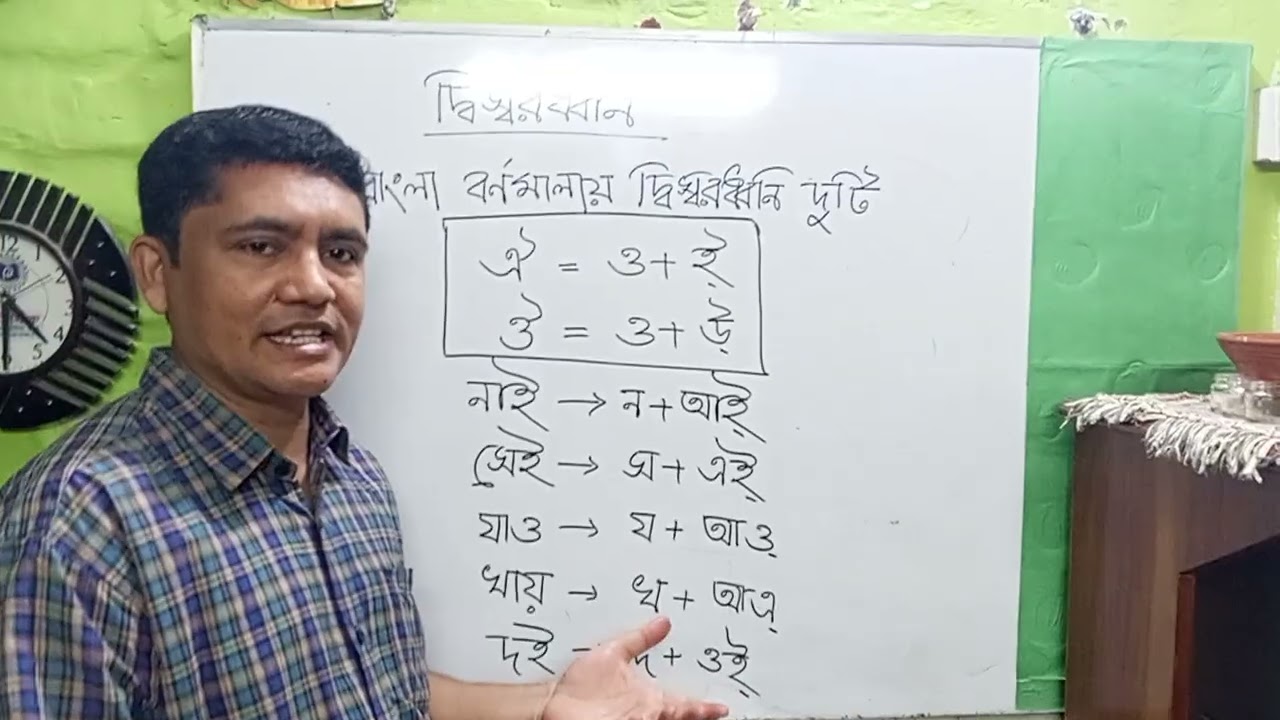 দ্বিস্বরধ্বনি
বাংলা বর্নমালায় দ্বিস্বরধ্বনি দুটি
ঐ = ও + ই্
ঔ = ও + উ্
নাই → ন + আই্
সেই → স + এই্
যাও → য + আও্
খায় → খ + আএ্
দই → দ + ওই্
12
2
4
5